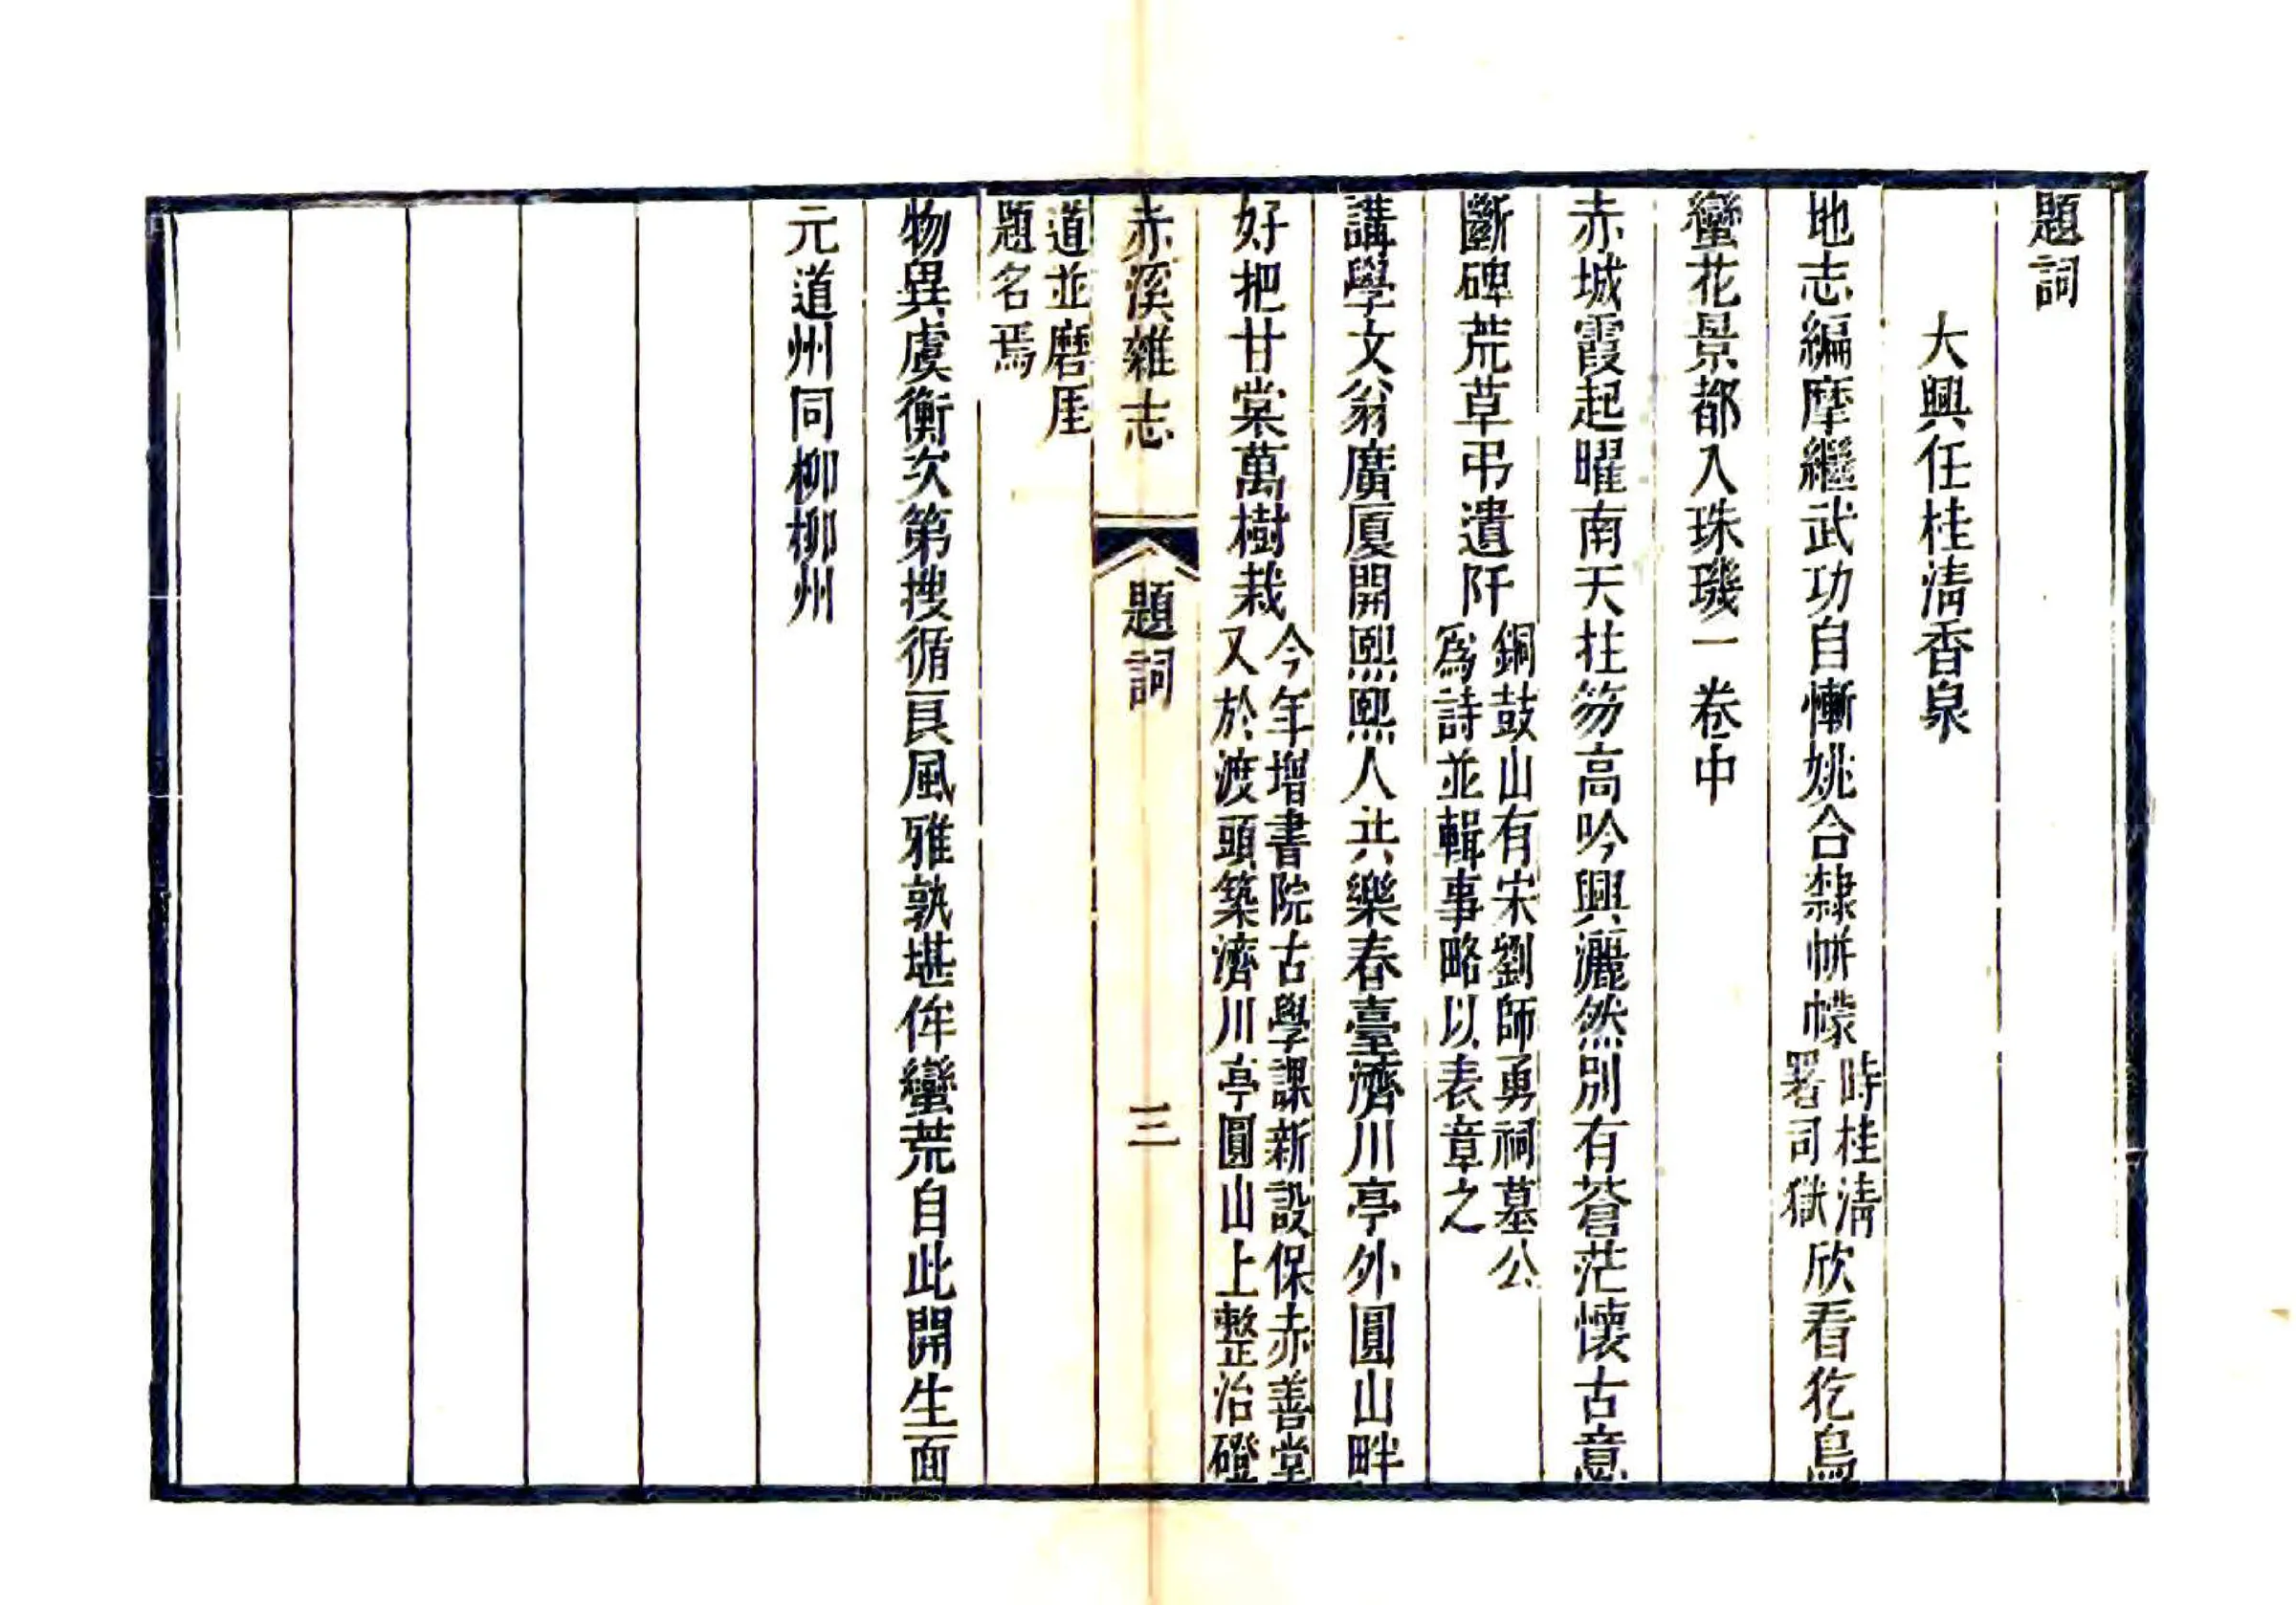 題詞
大興任桂淸香泉
地志編摩繼武功自慚姚合隸帡幪時桂淸署司獄欣看犵鳥
蠻花景都入珠璣一卷中
赤城霞起曜南天拄笏高吟興灑然別有蒼茫懷古意
斷碑荒草弔遺阡銅鼓山有宋劉師勇祠墓公爲詩並輯事略以表章之
講學文翁廣厦開熙熙人共樂春臺濟川亭外圓山畔
好把甘棠萬樹栽今年增書院古學課新設保赤善堂又於渡頭築濟川亭圓山上整治磴
赤溪雜志
題詞
三
道並磨厓題名焉
物異虞衡次第搜循良風雅孰堪侔蠻荒自此開生面
元道州同柳柳州